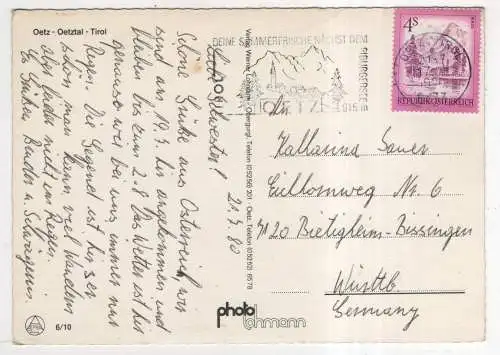 Oetz - Oetztal - Tirol
21.7.80
Liebe Schwester!
Schöne Grüße aus Österreich wir
sind am 19.7. hier angekommen und
bleiben bis zum 2.8. Das Wetter ist hier
genauso wie bei uns, immer nur
Regen. Die Gegend ist hier sehr
schön, man kann viel wandern
aber leider nicht im Regen.
Es Grüßen Bruder u. Schwägerin.
6/10
Verlag Werner Lohmann - Obergurgl, Telefon (05256) 201 - Oetz, Telefon (05252) 6578
photo
lohmann
DEINE SOMMERFRISCHE NÄCHST DEM
PIBURGERSEE
OETZ
4S
REPUBLIK ÖSTERREICH
An
Katharina Sauer
Nr 6
7120 Bietigheim-Bissingen
Württb.
Germany